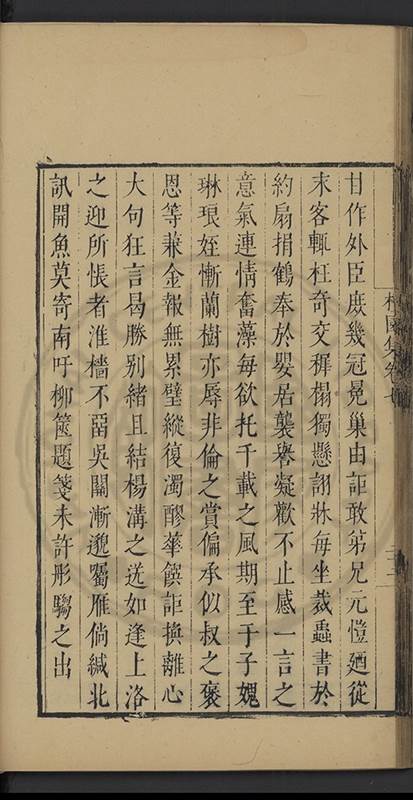 甘作外臣庻幾冠冕巢由詎敢第兄元愷廼從
末客輒枉奇交穉榻獨懸詡牀每坐裁蟲書於
約扇捐鶴奉於嬰居襲譽凝歡不止感一言之
意氣連情奮藻每欲托千載之風期至于子媿
琳琅姪慚蘭樹亦辱非倫之賞偏承似叔之褒
恩等兼金報無累璧縱復濁醪華饌詎換離心
大句狂言曷勝别緒且結楊溝之送如逢上洛
之迎所悵者淮檣不㽞吳關漸邈蜀雁倘緘北
訊開魚莫寄南吁柳篋題箋未許彤騶之出
集卷七